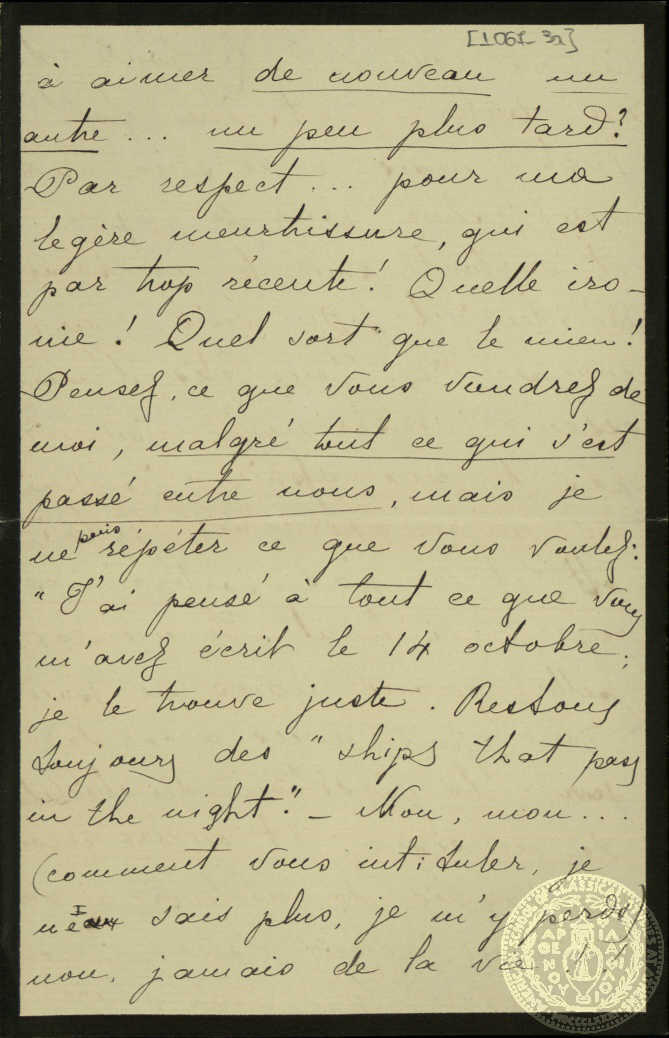 [1067-3a]
à aimer de nouveau un
autre ... un peu plus tard?
Par respect ... pour ma
legère meurtrissure, qui est
par trop récente! Quelle iro-
nie! Quel sort que le mien!
Pensez, ce que vous voudrez de
moi, malgré tout ce qui s'est
passé entre nous, mais je
ne puis répéter ce que vous voulez:
"J'ai pensé à tout ce que vous
m'avez écrit le 14 octobre;
je le trouve juste. Restons
toujours des "ships that pass
in the night". - Non, mon ...
(comment vous intituler, je
ne sais plus, je m'y perds)
non, jamais de la vie!..!